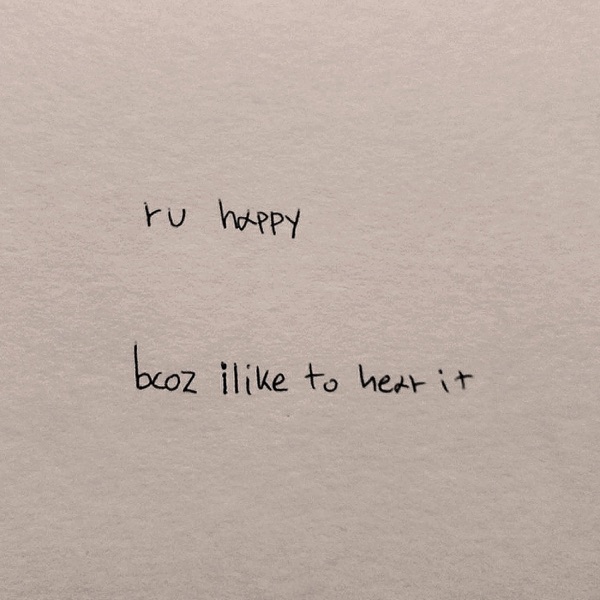 ru happy
bcoz ilike to hear it